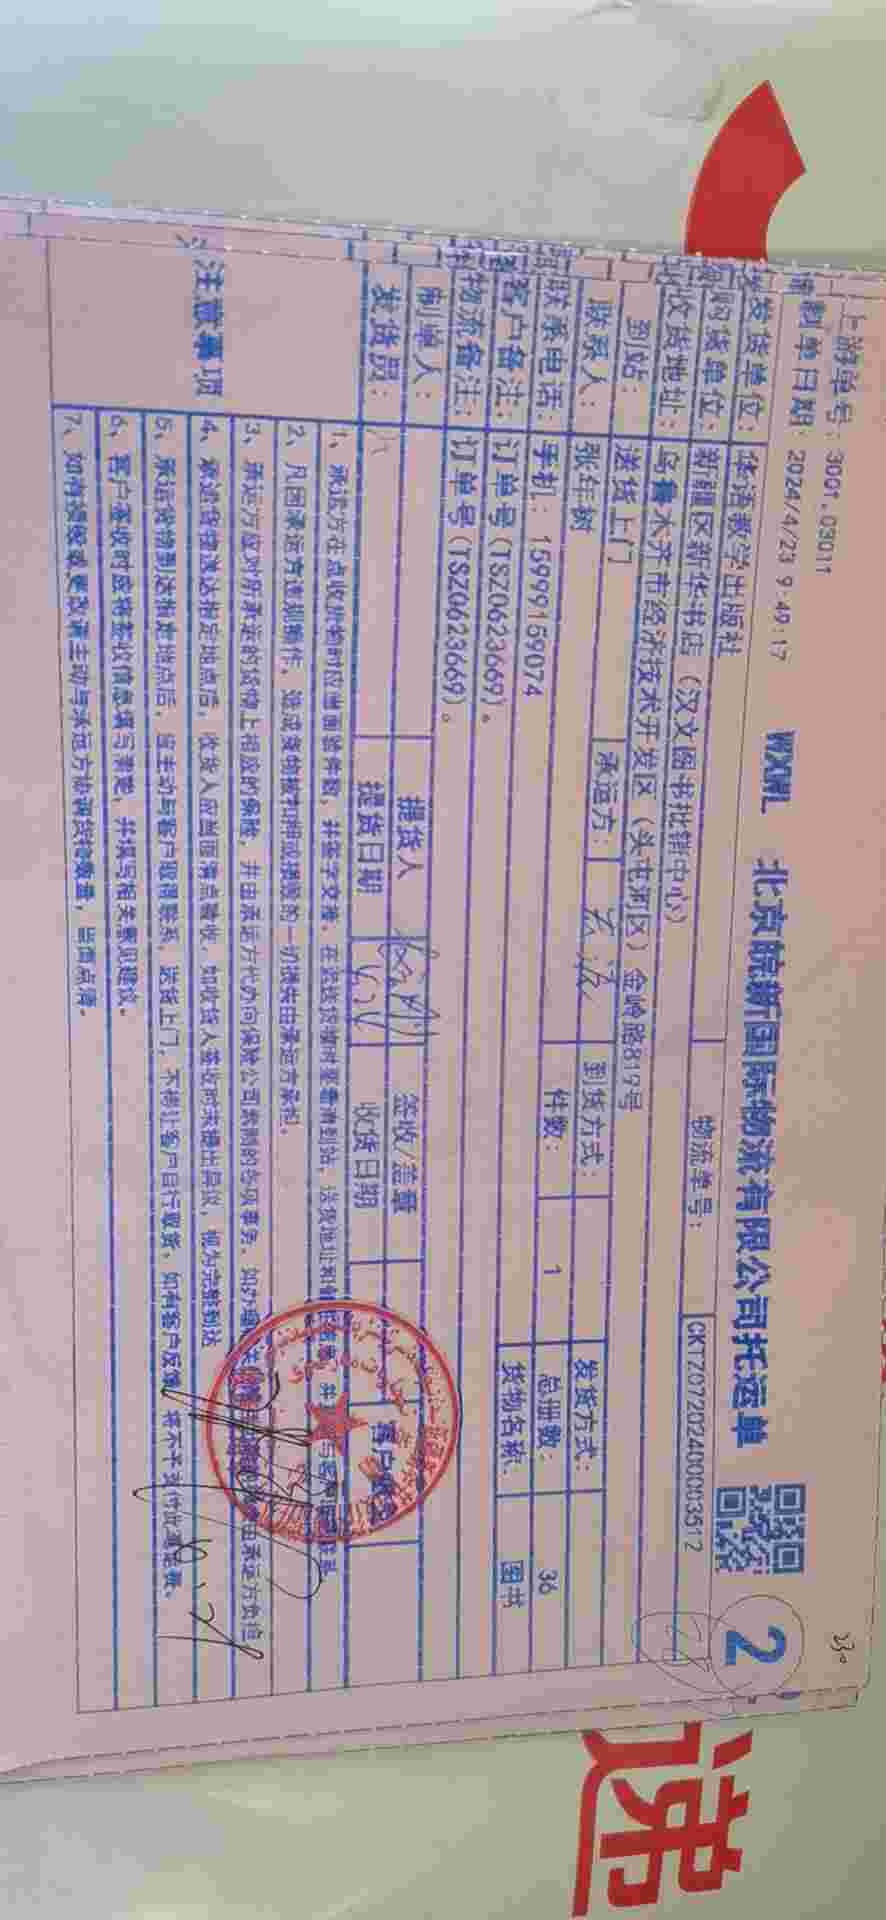 上游单号：3001.03011
制单日期：2024/4/23 9:49:17
WXHL 北京皖新国际物流有限公司托运单
2
发货单位： 华语教学出版社 物流单号： CKTZ07202400093512
购货单位： 新疆区新华书店（汉文图书批销中心）
收货地址： 乌鲁木齐市经济技术开发区（头屯河区）金岭路819号
到站： 送货上门 承运方： 到货方式： 发货方式：
联系人： 张年树 件数： 1 总册数： 36
联系电话： 手机：15999159074 货物名称： 图书
客户备注： 订单号(TSZ0623669)。
物流备注： 订单号(TSZ0623669)。
制单人： 提货人 签收/盖章
发货员： 提货日期 收货日期
注意事项
1、承运方在点收货物时应当面验件数，并签字交接，在送达货物时要看清到站、送货地址和
2、凡因承运方违规操作，造成货物被扣押或损毁的一切损失由承运方承担。
3、承运方应对所承运的货物上相应的保险，并由承运方代办向保险公司索赔的各项事务，如办理 由承运方负担
4、承运货物送达指定地点后，收货人应当面清点验收，如收货人签收时未提出异议，视为完整到达
5、承运货物到达指定地点后，应主动与客户取得联系，送货上门，不得让客户自行取货，如有客户反馈，将不予支付此笔运费。
6、客户签收时应将签收信息填写清楚，并填写相关意见建议。
7、如有损毁或更改请主动与承运方协调货物数量，当面点清。
速